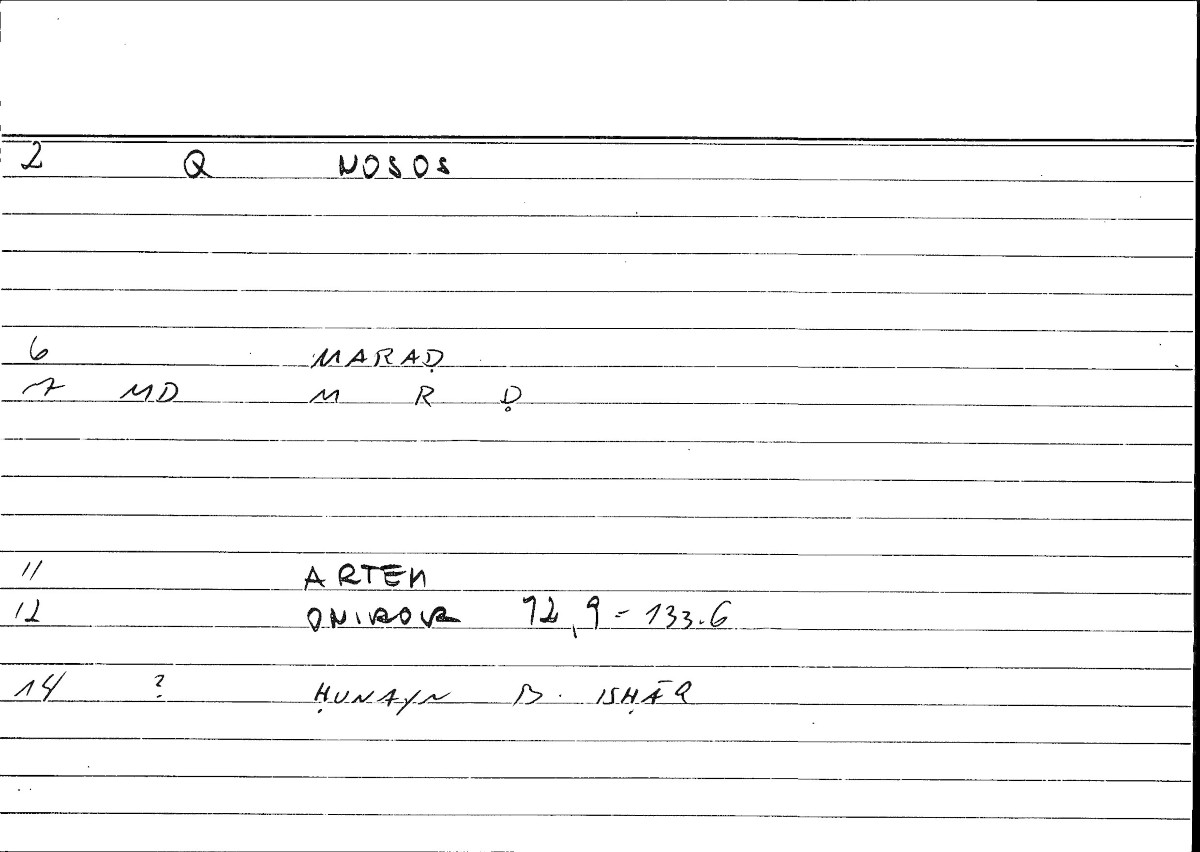 2 Q NOSOS
6 MARAḌ
7 MD M R Ḍ
11 ARTEM
12 ONIROCR 72,9 = 133.6
14 ? ḤUNAYN B. ISḤĀQ